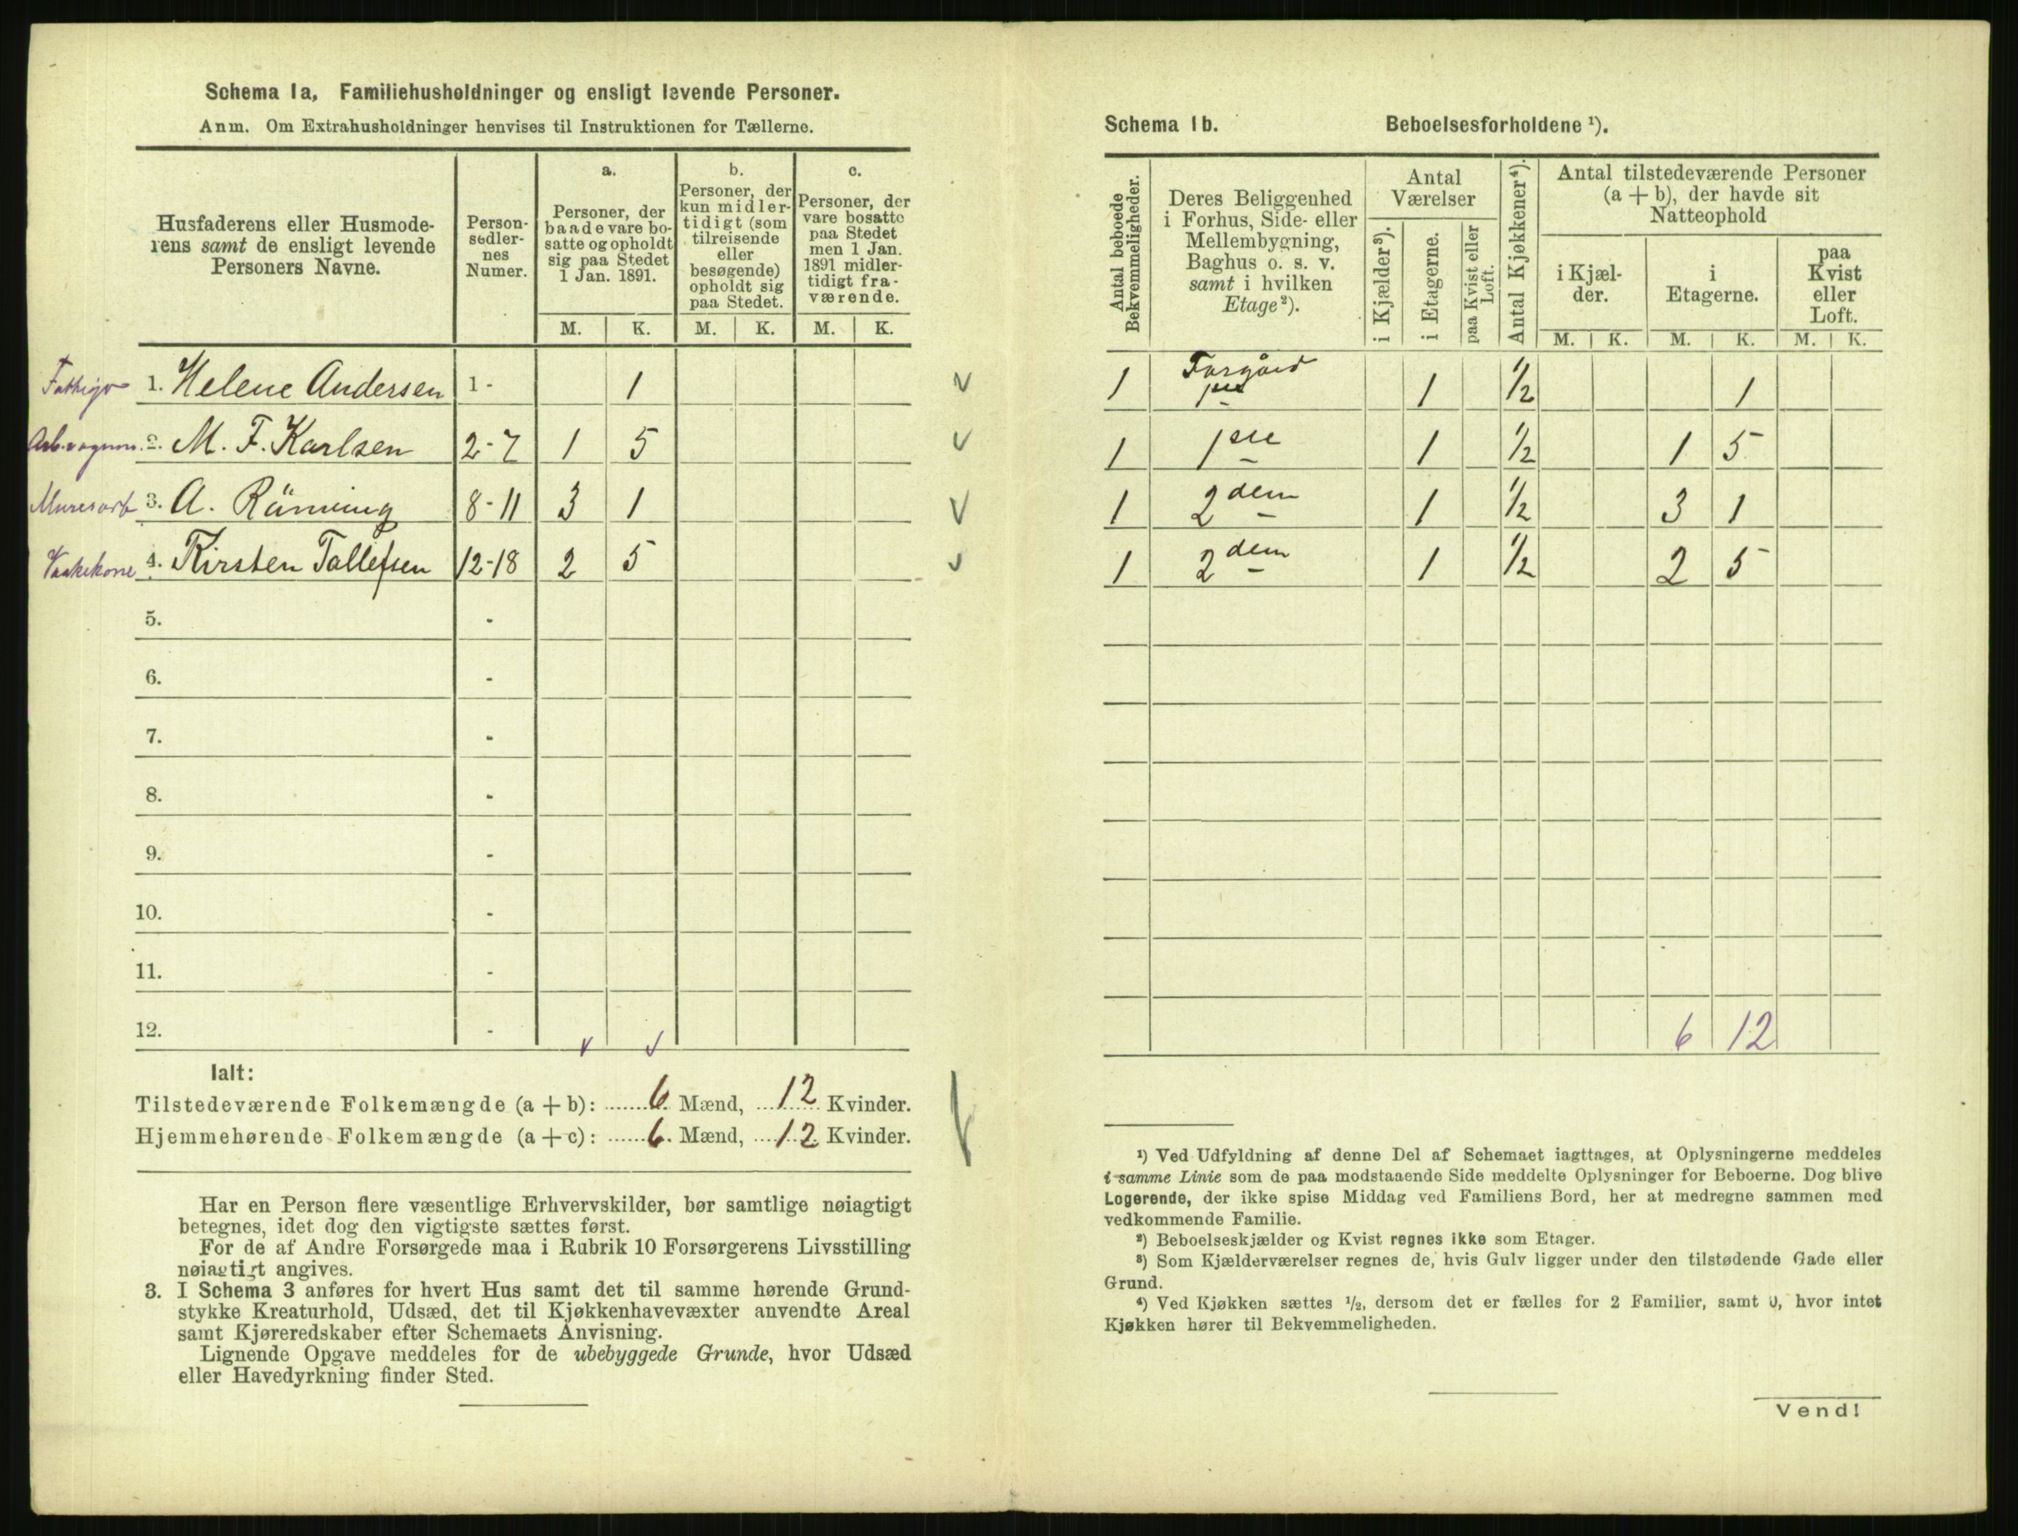 Schema 1a, Familiehusholdninger og ensligt levende Personer.
Anm. Om Extrahusholdninger henvises til Instruktionen for Tællerne.
Husfaderens eller Husmode-
rens samt de ensligt levende
Personers Navne.
Person-
sedler-
nes
Numer.
a.
Personer, der
baade vare bo-
satte og opholdt
sig paa Stedet
1 Jan. 1891.
b.
Personer, der
kun midler-
tidigt (som
tilreisende
eller
besøgende)
opholdt sig
paa Stedet.
c.
Personer, der
vare bosatte
paa Stedet
men 1 Jan.
1891 midler-
tidigt fra-
værende.
M. K. M. K. M. K.
1. Helene Andersen 1 - 1
2. M. F. Karlsen 2-7 1 5
Murerarb 3. A. Rönning 8-11 3 1
Vaskekone 4. Kirsten Tollefsen 12-18 2 5
5. -
6. -
7. -
8. -
9. -
10. -
11. -
12. -
Ialt:
Tilstedeværende Folkemængde (a + b): 6 Mænd, 12 Kvinder.
Hjemmehørende Folkemængde (a + c): 6 Mænd, 12 Kvinder.
Har en Person flere væsentlige Erhvervskilder, bør samtlige nøiagtigt
betegnes, idet dog den vigtigste sættes først.
For de af Andre Forsørgede maa i Rubrik 10 Forsørgerens Livsstilling
nøiagtigt angives.
3. I Schema 3 anføres for hvert Hus samt det til samme hørende Grund-
stykke Kreaturhold, Udsæd, det til Kjøkkenhavevæxter anvendte Areal
samt Kjøreredskaber efter Schemaets Anvisning.
Lignende Opgave meddeles for de ubebyggede Grunde, hvor Udsæd
eller Havedyrkning finder Sted.
Schema 1b. Beboelsesforholdene ¹).
Antal beboede
Bekvemmeligheder.
Deres Beliggenhed
i Forhus, Side- eller
Mellembygning,
Baghus o. s. v.
samt i hvilken
Etage²).
Antal
Værelser
i Kjælder³).
i Etagerne.
paa Kvist eller
Loft.
Antal Kjøkkener⁴).
Antal tilstedeværende Personer
(a + b), der havde sit
Natteophold
i Kjæl-
der.
i
Etagerne.
paa
Kvist
eller
Loft.
M. K. M. K. M. K.
1 Forgård 1ste 1 1/2 1
1 1ste 1 1/2 1 5
1 2den 1 1/2 3 1
1 2den 1 1/2 2 5
6 12
¹) Ved Udfyldning af denne Del af Schemaet iagttages, at Oplysningerne meddeles
i samme Linie som de paa modstaaende Side meddelte Oplysninger for Beboerne. Dog blive
Logerende, der ikke spise Middag ved Familiens Bord, her at medregne sammen med
vedkommende Familie.
²) Beboelseskjælder og Kvist regnes ikke som Etager.
³) Som Kjælderværelser regnes de, hvis Gulv ligger under den tilstødende Gade eller
Grund.
⁴) Ved Kjøkken sættes ¹/₂, dersom det er fælles for 2 Familier, samt 0, hvor intet
Kjøkken hører til Bekvemmeligheden.
Vend!